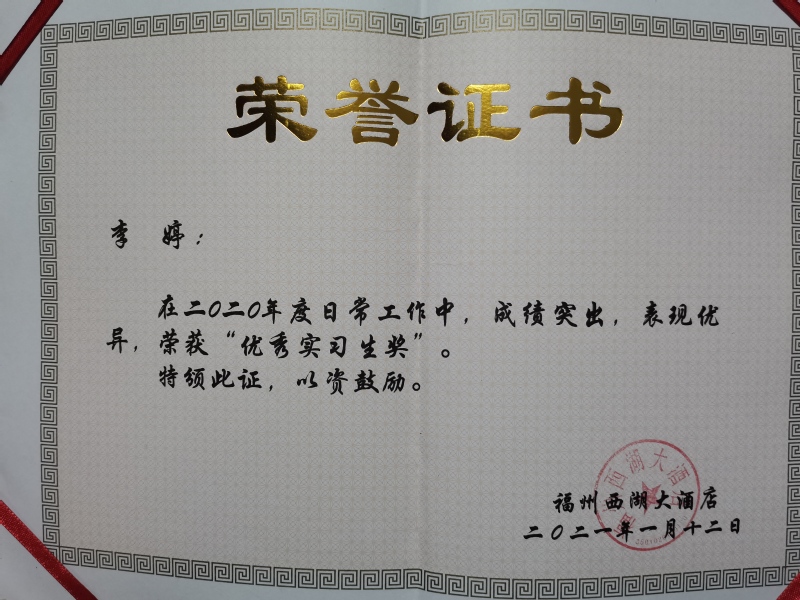 荣誉证书
李 婷：
在二〇二〇年度日常工作中，成绩突出，表现优
异，荣获“优秀实习生奖”。
特颁此证，以资鼓励。
福州西湖大酒店
二〇二一年一月十二日